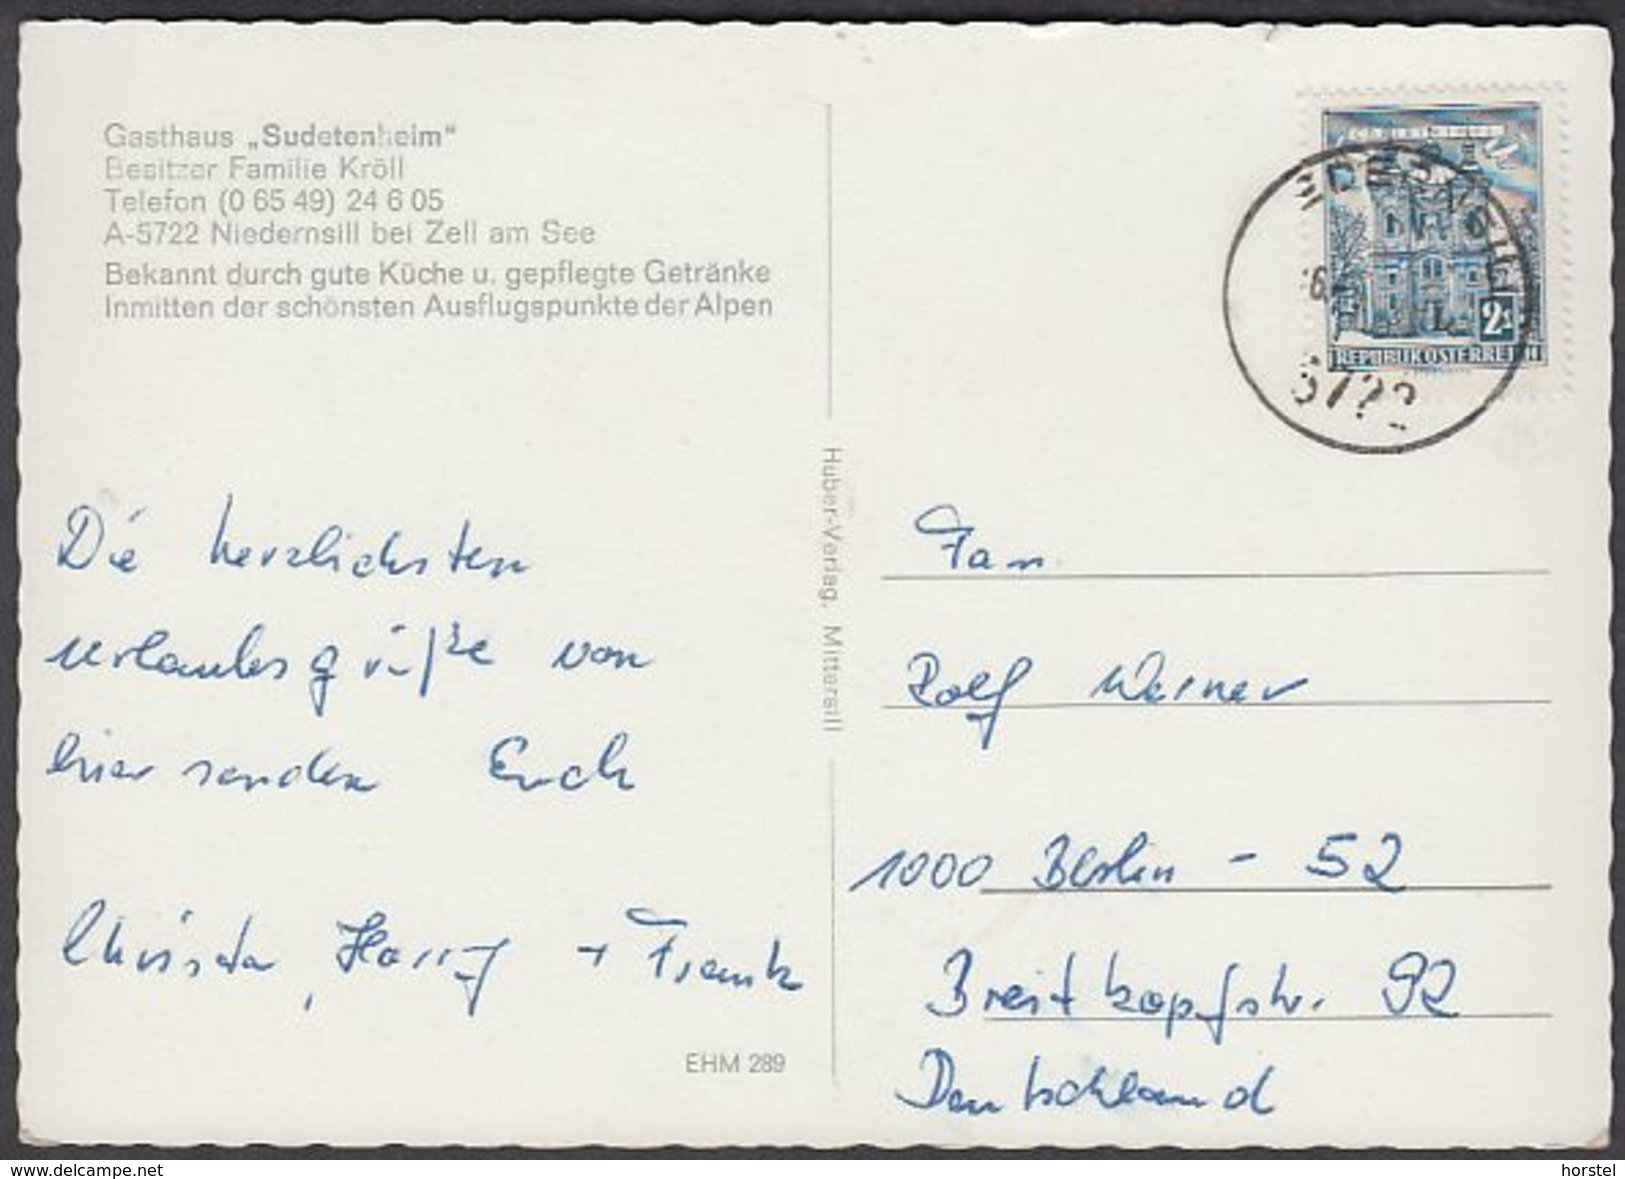 Gasthaus „Sudetenheim“
Besitzer Familie Kröll
Telefon (0 65 49) 24 6 05
A-5722 Niedernsill bei Zell am See
Bekannt durch gute Küche u. gepflegte Getränke
Inmitten der schönsten Ausflugspunkte der Alpen
Die herzlichsten
Urlaubsgrüße von
hier senden Euch
Christa, Harry + Frank
EHM 289
Huber-Verlag, Mittersill
2S
REPUBLIK ÖSTERREICH
5722
Fam.
Rolf Werner
1000 Berlin - 52
Breitkopfstr. 92
Deutschland
www.delcampe.net
horstel